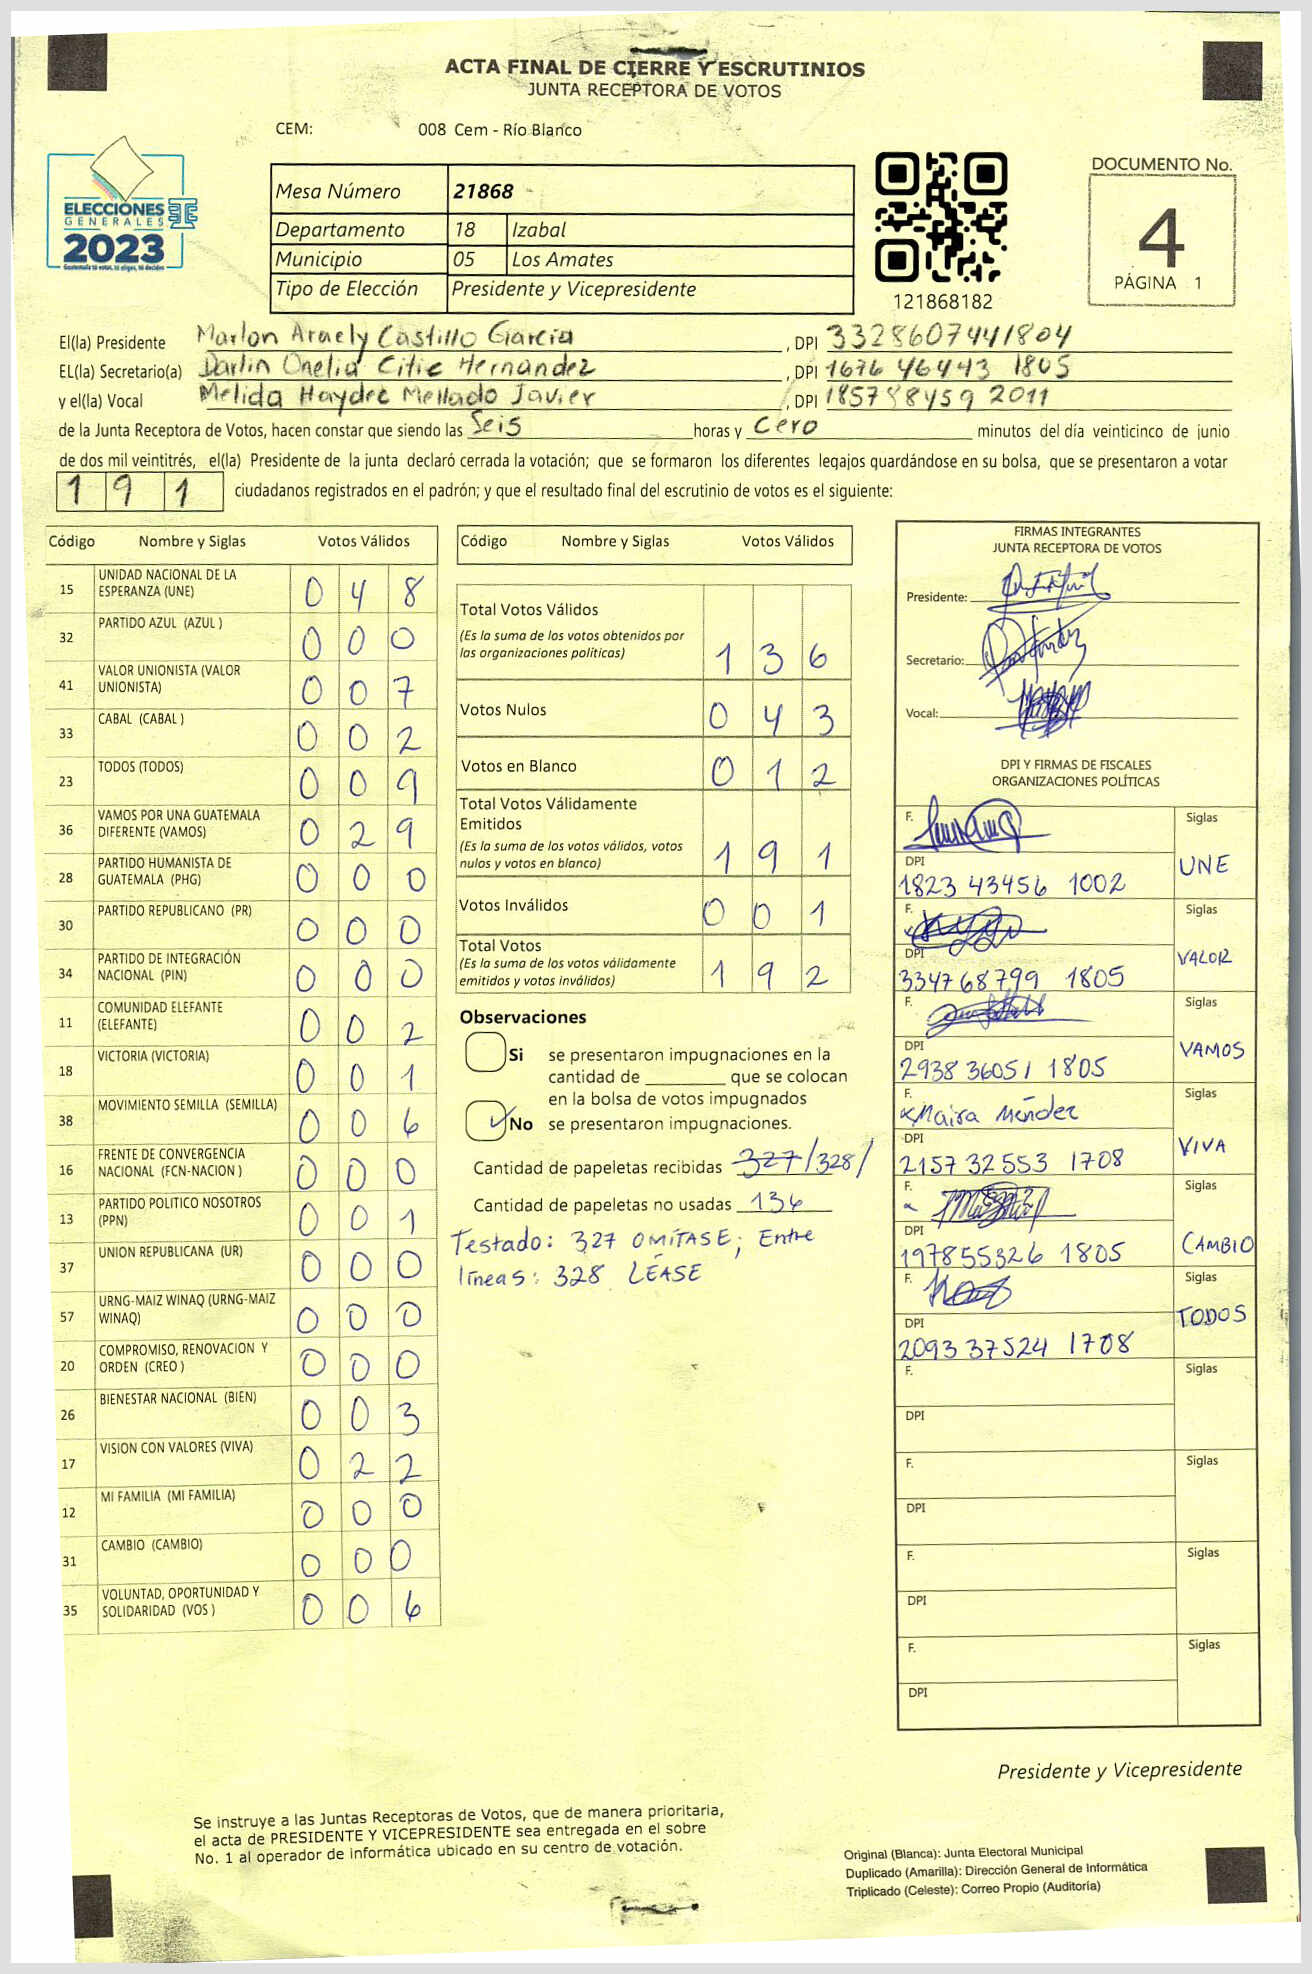 ACTA FINAL DE CIERRE Y ESCRUTINIOS
JUNTA RECEPTORA DE VOTOS
CEM: 008 Cem - Río Blanco
ELECCIONES
GENERALES
2023
Guatemala tú votas, tú eliges, tú decides
Mesa Número 21868
Departamento 18 Izabal
Municipio 05 Los Amates
Tipo de Elección Presidente y Vicepresidente
121868182
DOCUMENTO No.
4
PÁGINA 1
El(la) Presidente Marlon Araely Castillo García, DPI 3328607441804
EL(la) Secretario(a) Darlin Onelia Citic Hernandez, DPI 1676 46443 1805
y el(la) Vocal Melida Haydee Mellado Javier, DPI 185798459 2011
de la Junta Receptora de Votos, hacen constar que siendo las Seis horas y Cero minutos del día veinticinco de junio
de dos mil veintitrés, el(la) Presidente de la junta declaró cerrada la votación; que se formaron los diferentes legajos guardándose en su bolsa, que se presentaron a votar
191 ciudadanos registrados en el padrón; y que el resultado final del escrutinio de votos es el siguiente:
Código Nombre y Siglas Votos Válidos
15 UNIDAD NACIONAL DE LA ESPERANZA (UNE) 0 4 8
32 PARTIDO AZUL (AZUL ) 0 0 0
41 VALOR UNIONISTA (VALOR UNIONISTA) 0 0 7
33 CABAL (CABAL ) 0 0 2
23 TODOS (TODOS) 0 0 9
36 VAMOS POR UNA GUATEMALA DIFERENTE (VAMOS) 0 2 9
28 PARTIDO HUMANISTA DE GUATEMALA (PHG) 0 0 0
30 PARTIDO REPUBLICANO (PR) 0 0 0
34 PARTIDO DE INTEGRACIÓN NACIONAL (PIN) 0 0 0
11 COMUNIDAD ELEFANTE (ELEFANTE) 0 0 2
18 VICTORIA (VICTORIA) 0 0 1
38 MOVIMIENTO SEMILLA (SEMILLA) 0 0 6
16 FRENTE DE CONVERGENCIA NACIONAL (FCN-NACION ) 0 0 0
13 PARTIDO POLITICO NOSOTROS (PPN) 0 0 1
37 UNION REPUBLICANA (UR) 0 0 0
57 URNG-MAIZ WINAQ (URNG-MAIZ WINAQ) 0 0 0
20 COMPROMISO, RENOVACION Y ORDEN (CREO ) 0 0 0
26 BIENESTAR NACIONAL (BIEN) 0 0 3
17 VISION CON VALORES (VIVA) 0 2 2
12 MI FAMILIA (MI FAMILIA) 0 0 0
31 CAMBIO (CAMBIO) 0 0 0
35 VOLUNTAD, OPORTUNIDAD Y SOLIDARIDAD (VOS ) 0 0 6
Código Nombre y Siglas Votos Válidos
Total Votos Válidos
(Es la suma de los votos obtenidos por las organizaciones políticas) 1 3 6
Votos Nulos 0 4 3
Votos en Blanco 0 1 2
Total Votos Válidamente Emitidos
(Es la suma de los votos válidos, votos nulos y votos en blanco) 1 9 1
Votos Inválidos 0 0 1
Total Votos
(Es la suma de los votos válidamente emitidos y votos inválidos) 1 9 2
Observaciones
Si se presentaron impugnaciones en la
cantidad de ________ que se colocan
en la bolsa de votos impugnados
No se presentaron impugnaciones.
Cantidad de papeletas recibidas 327/328/
Cantidad de papeletas no usadas 136
Testado: 327 OMÍTASE; Entre
líneas: 328 LÉASE
FIRMAS INTEGRANTES
JUNTA RECEPTORA DE VOTOS
Presidente:
Secretario:
Vocal:
DPI Y FIRMAS DE FISCALES
ORGANIZACIONES POLÍTICAS
F. Siglas
DPI 1823 43456 1002 UNE
F. Siglas
DPI 334768799 1805 VALOR
F. Siglas
DPI 2938 36051 1805 VAMOS
F. Maira Méndez Siglas
DPI 2157 32553 1708 VIVA
F. Siglas
DPI 197855326 1805 CAMBIO
F. Siglas
DPI 2093 37524 1708 TODOS
F. Siglas
DPI
F. Siglas
DPI
F. Siglas
DPI
F. Siglas
DPI
Presidente y Vicepresidente
Se instruye a las Juntas Receptoras de Votos, que de manera prioritaria,
el acta de PRESIDENTE Y VICEPRESIDENTE sea entregada en el sobre
No. 1 al operador de informática ubicado en su centro de votación.
Original (Blanca): Junta Electoral Municipal
Duplicado (Amarilla): Dirección General de Informática
Triplicado (Celeste): Correo Propio (Auditoría)